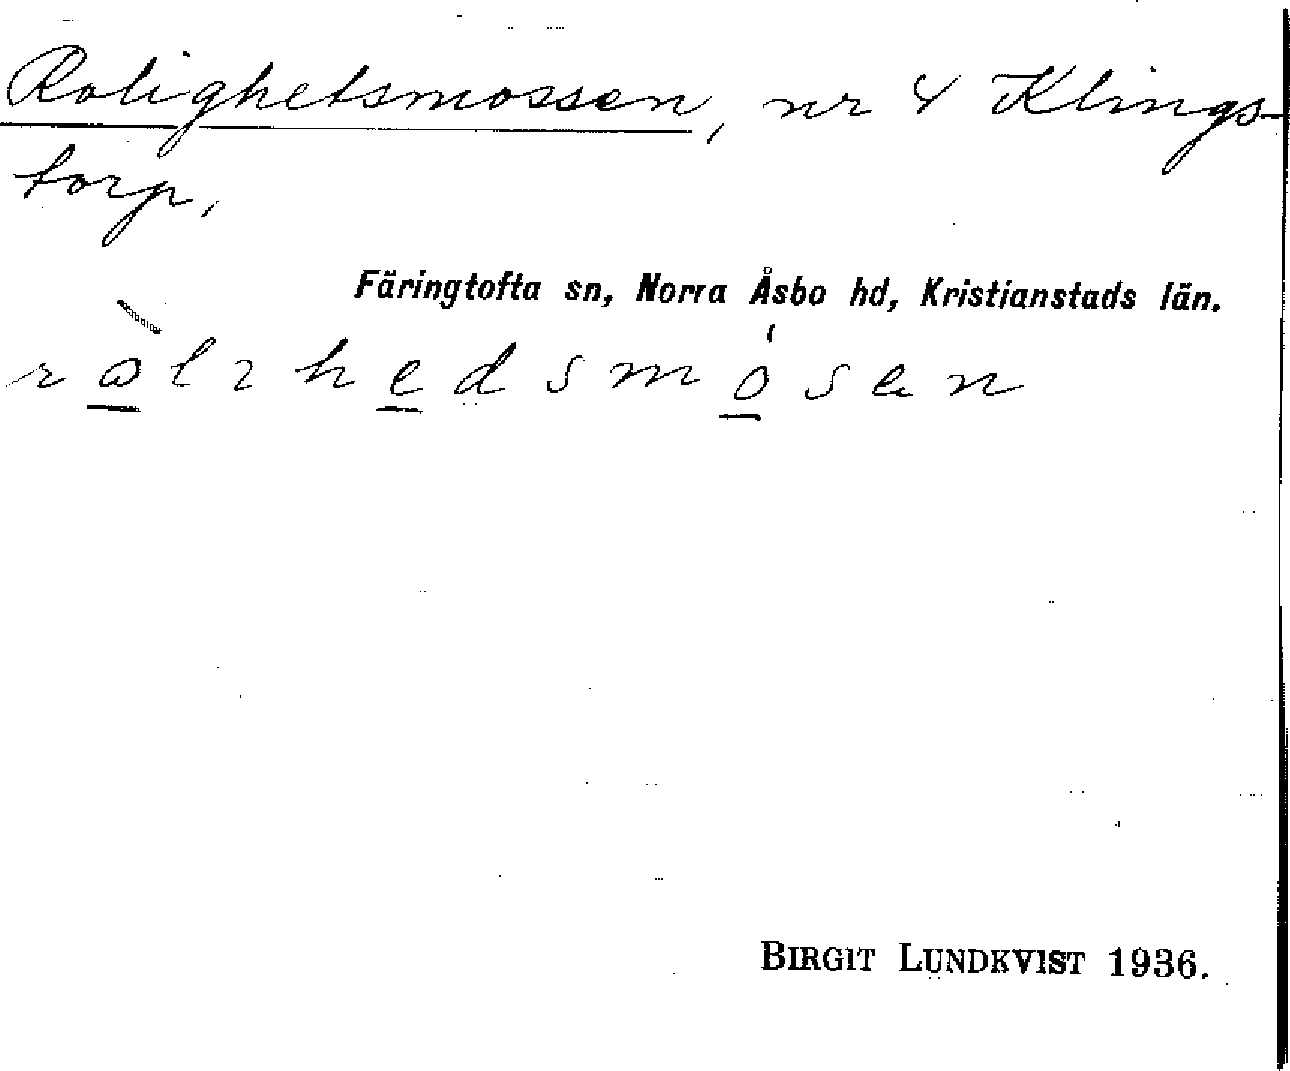 Rolighetsmossen, nr 4 Klings-
torp,
Färingtofta sn, Norra Åsbo hd, Kristianstads län.
BIRGIT LUNDKVIST 1936.